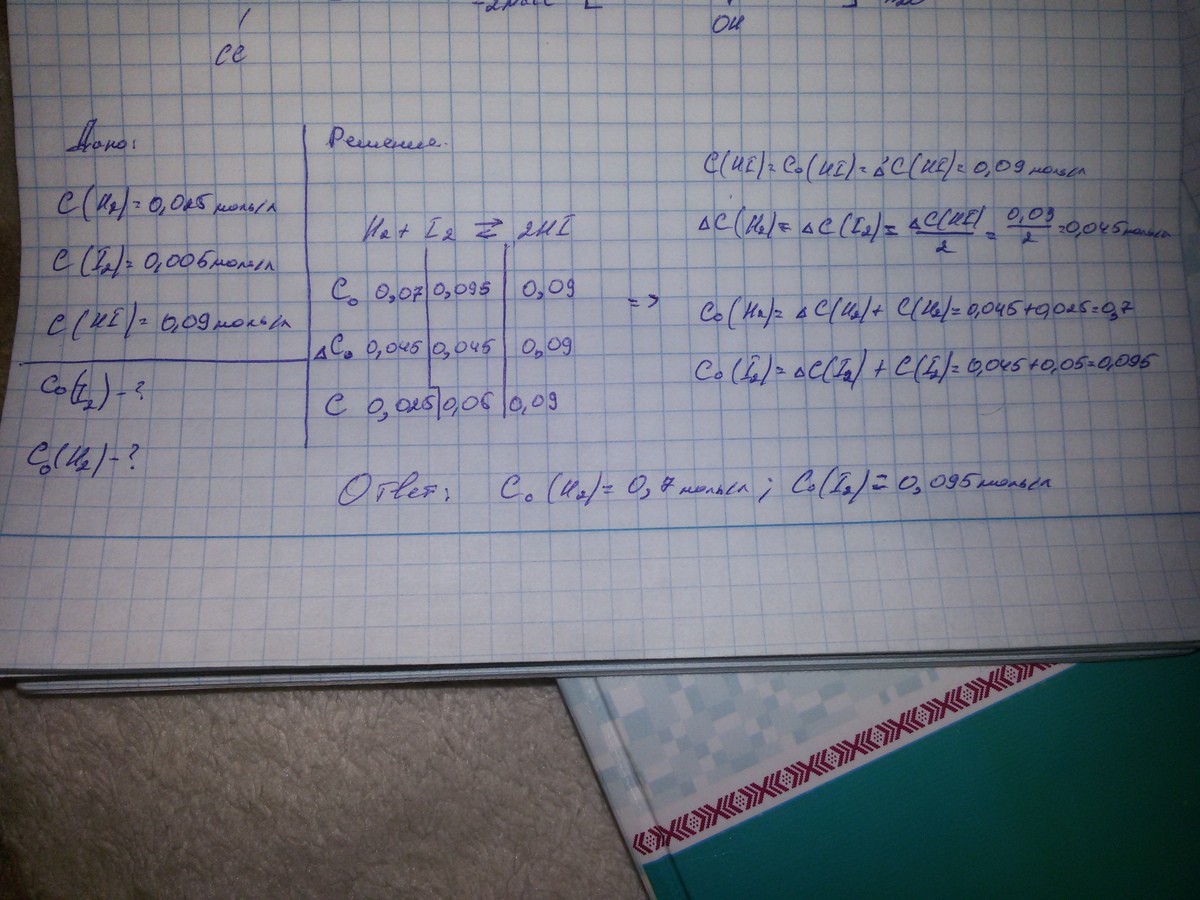 OH
CC
Дано:
C(H₂)=0,025моль\л
C(I₂)=0,005моль\л
C(HI)=0,09моль\л
C₀(I₂)-?
C₀(H₂)-?
Решение.
H₂+ I₂ ⇄ 2HI
C₀ 0,07 0,095 0,09
ΔC₀ 0,045 0,045 0,09
C 0,025 0,05 0,09
=>
C(HI)=C₀(HI)=ΔC(HI)=0,09моль\л
ΔC(H₂)= ΔC(I₂)= ΔC(HI)/2 = 0,09/2 =0,045моль\л
C₀(H₂)= ΔC(H₂)+ C(H₂)=0,045+0,025=0,7
C₀(I₂)= ΔC(I₂) + C(I₂)=0,045+0,05=0,095
Ответ: C₀(H₂)= 0,7моль\л; C₀(I₂)= 0,095моль\л